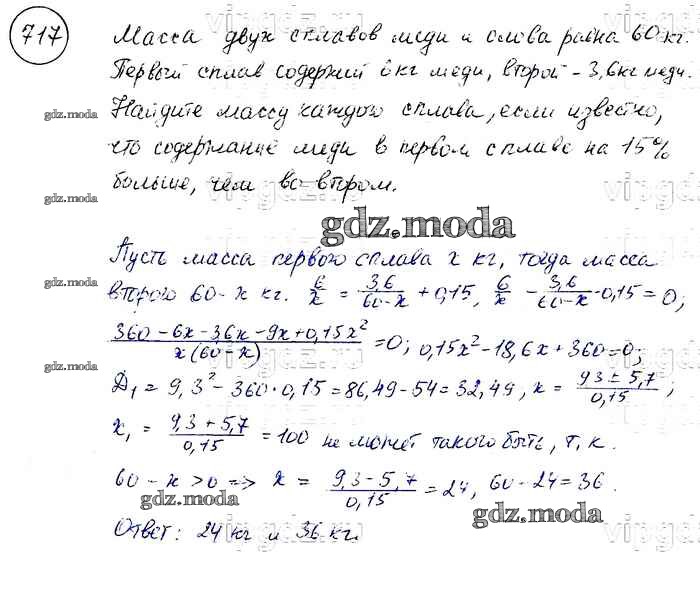 717
Масса двух сплавов меди и олова равна 60 кг.
Первый сплав содержит 6 кг меди, второй - 3,6 кг меди.
Найдите массу каждого сплава, если известно,
что содержание меди в первом сплаве на 15%
больше, чем во втором.
gdz.moda
Пусть масса первого сплава x кг, тогда масса
второго 60-x кг. 6/x = 3,6/(60-x) + 0,15, 6/x - 3,6/(60-x) - 0,15 = 0;
(360-6x-3,6x-9x+0,15x²)/(x(60-x)) = 0; 0,15x²-18,6x+360=0;
Д₁ = 9,3² - 360·0,15 = 86,49-54 = 32,49, x = (9,3 ± 5,7)/0,15;
x₁ = (9,3+5,7)/0,15 = 100 не может такого быть, т.к.
60-x>0 => x = (9,3-5,7)/0,15 = 24, 60-24=36.
Ответ: 24 кг и 36 кг.
gdz.moda
gdz.moda
gdz.moda
gdz.moda
gdz.moda
gdz.moda
gdz.moda
gdz.moda